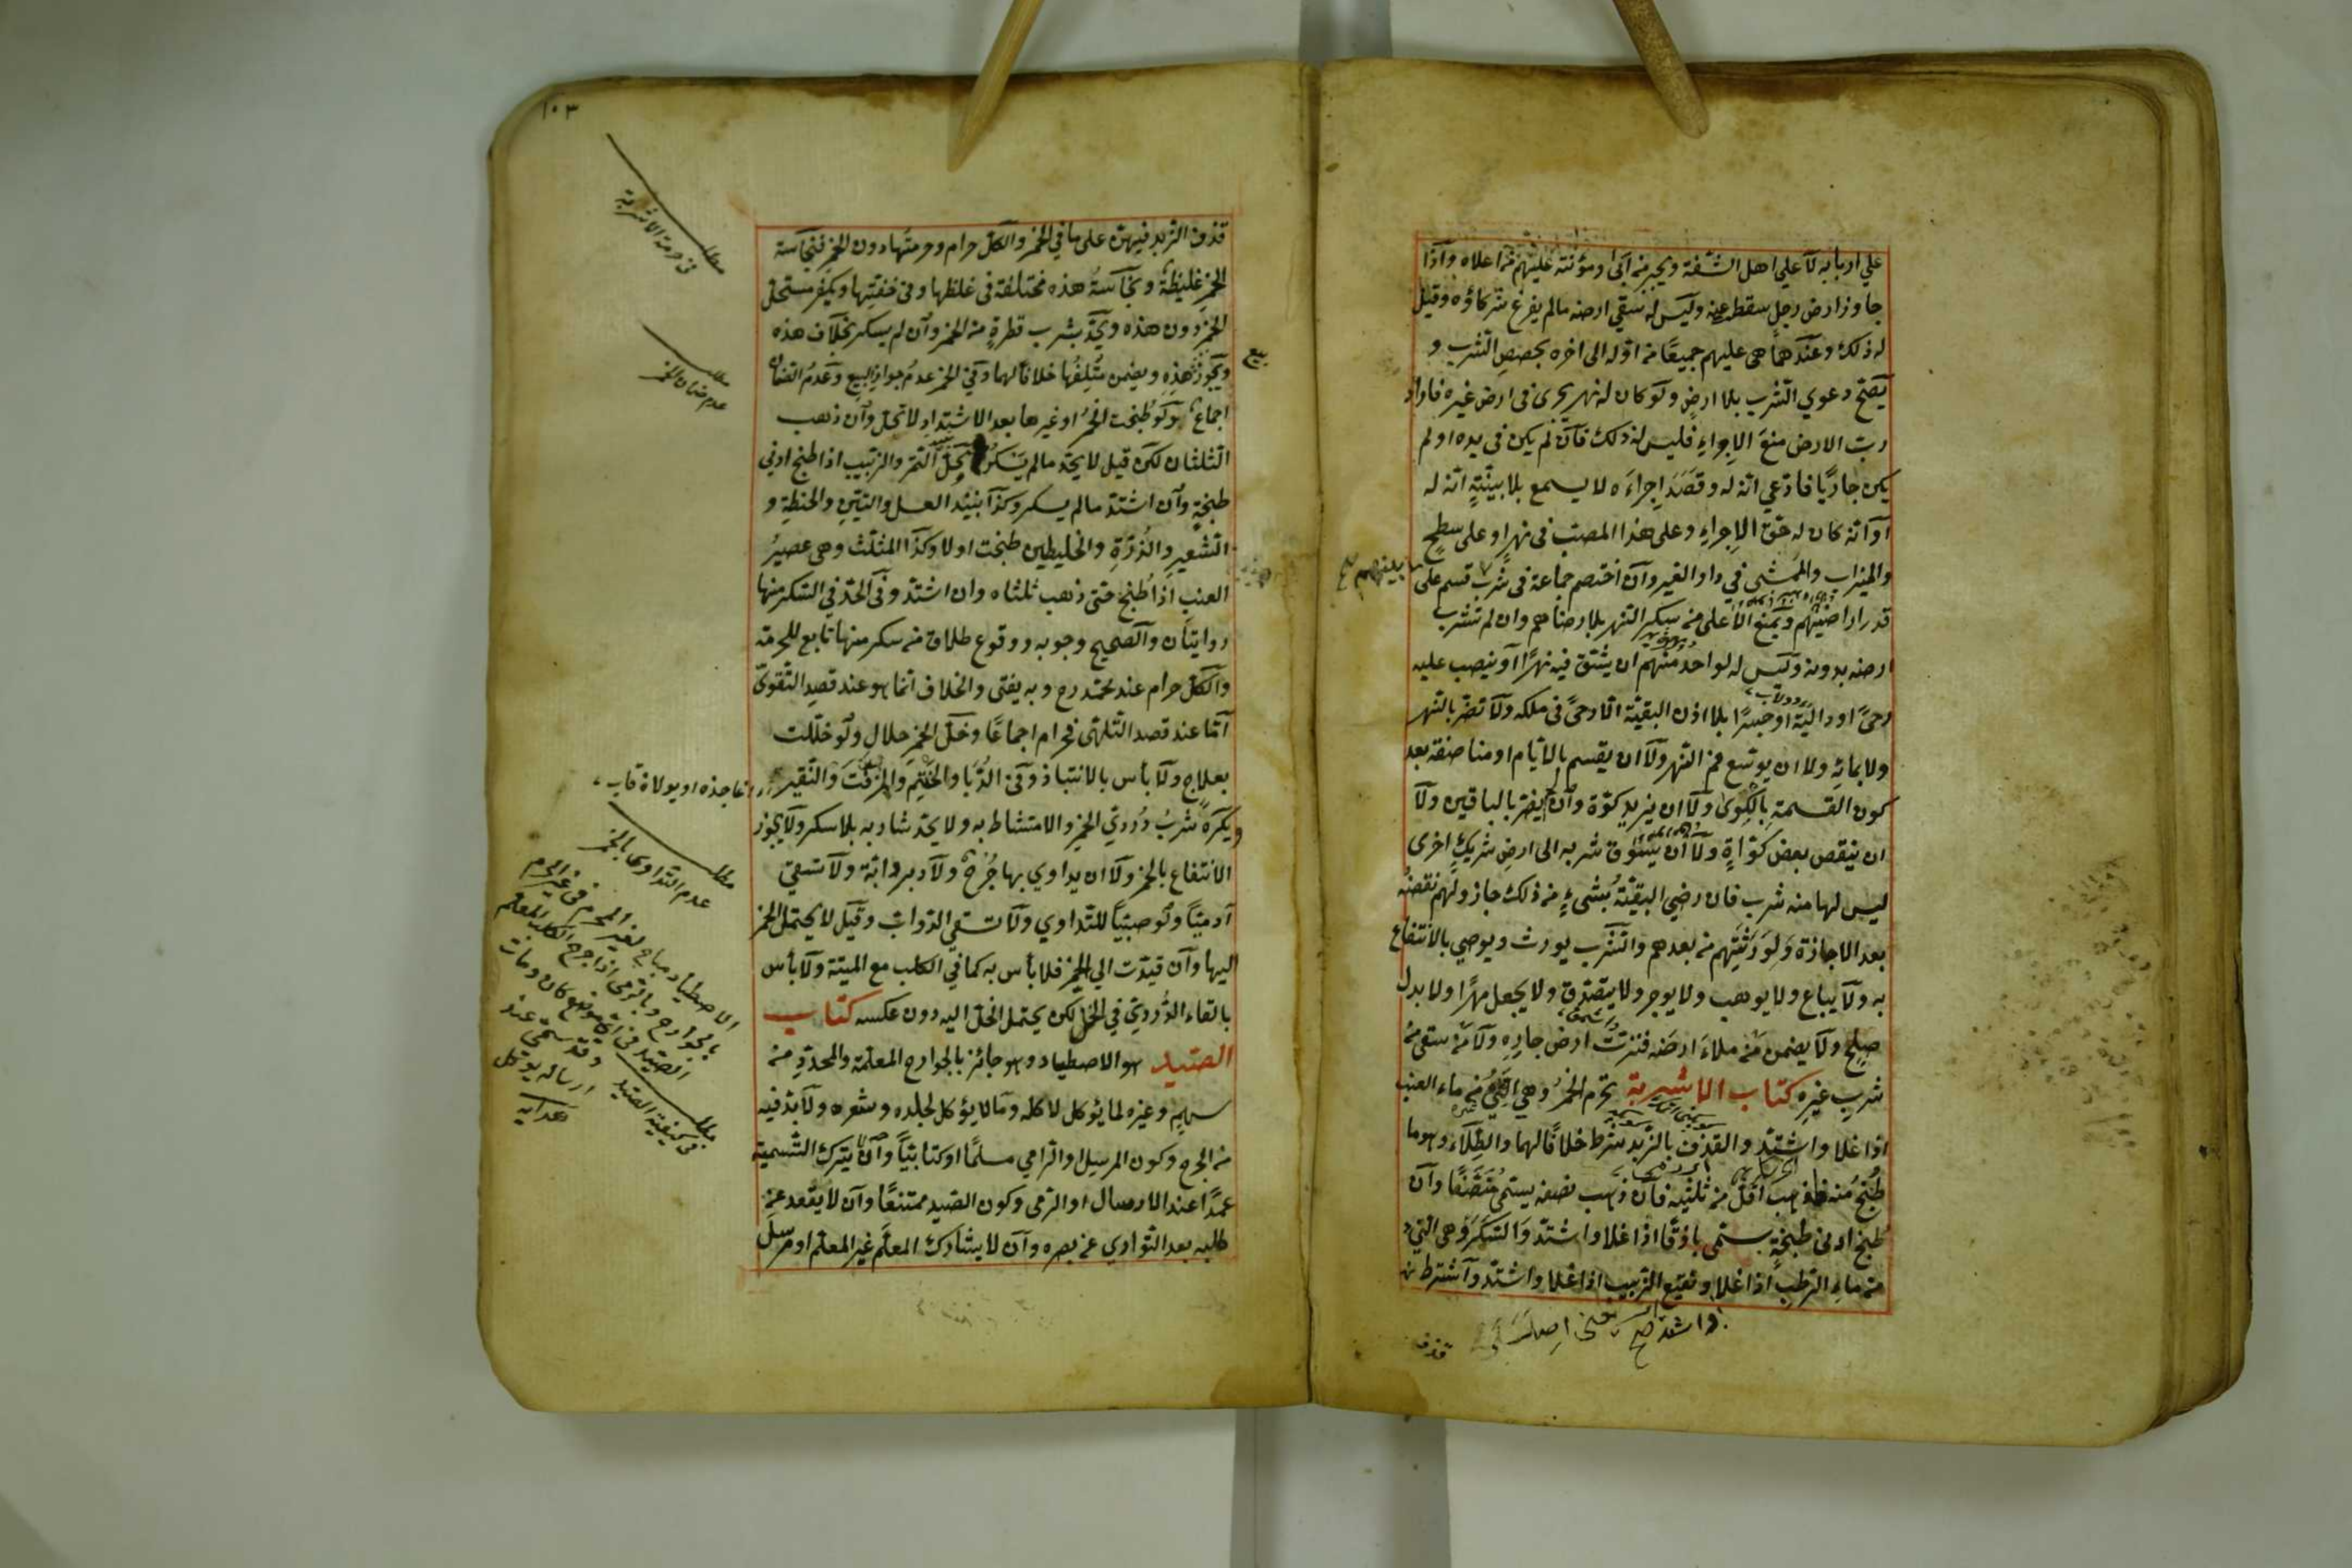 على اربابه لا على اهل الشفة ويجبر من ابى ومؤنته عليهم من اعلاه واذا
جاوز ارض رجل سقطت عنه وليس له سقي ارضه مالم يفرغ شركاؤه وقيل
له ذلك وعندهما هى عليهم جميعًا من اوله الى اخره بحصص الشرب و
يصح دعوى الشرب بلا ارض ولو كان له نهر يجرى فى ارض غيره فاراد
رب الارض منع الاجراء فليس له ذلك فان لم يكن فى يده او لم
يكن جاريًا فادعى انه له وقصد اجراءه لا يسمع بلا بينة انه له
او انه كان له حق الاجراء وعلى هذا المصب فى نهر او على سطح
والميزاب والممشى في دار الغير وان اختصم جماعة فى شرب قسم على
بينهم
قدر اراضيهم ويمنع الاعلى من سكر النهر بلا رضاهم وان لم تشرب
ارضه بدونه وليس لواحد منهم ان يشق فيه نهرًا او ينصب عليه
رحىً او دالية او جسرًا بلا اذن البقية الا رحىً فى ملكه ولا تضر بالنهر
ولا بمائه ولا ان يوسع فم النهر ولا ان يقسم بالايام او مناصفة بعد
كون القسمة بالكوى ولا ان يزيد كوّة وان لم يضر بالباقين ولا
ان ينقص بعض كواه ولا ان يسوق شربه الى ارض شريك اخرى
ليس لها منه شرب فان رضي البقية بشىء من ذلك جاز ولهم نقضه
بعد الاجازة ولورثتهم من بعدهم والشرب يورث ويوصي بالانتفاع
به ولا يباع ولا يوهب ولا يوجر ولا يتصدق ولا يجعل مهرًا ولا بدل
صلح ولا يضمن من ملاء ارضه فنزت ارض جاره ولا من سقى من
شرب غيره كتاب الاشربة تحرم الخمر وهي النّيّ من ماء العنب
اذا غلا واشتد والقذف بالزبد شرط خلافًا لهما والطلاء وهو ما
طبخ منه فذهب اقل من ثلثيه فان ذهب نصفه يسمى منصفًا وان
طبخ ادنى طبخة يسمى باذقًا اذا غلا واشتد والسكر وهى النّيّ
من ماء الرطب اذا غلا ونقيع الزبيب اذا غلا واشتد واشترط
قذف
١٠٣
قذف الزبد فيهن على ما في الخمر والكل حرام وحرمتها دون الخمر فنجاسة
الخمر غليظة ونجاسة هذه مختلفة فى غلظها وفى خفتها ويكفر مستحل
الخمر دون هذه ويحد بشرب قطرة من الخمر وان لم يسكر بخلاف هذه
ويجوز هذه ويضمن متلفها خلافًا لهما وفي الخمر عدم جواز البيع وعدم الضمان
بيع
اجماع ولو طبخت الخمر او غيرها بعد الاشتداد لا تحل وان ذهب
الثلثان لكن قيل لا يحد مالم يسكر ويحل نبيذ التمر والزبيب اذا طبخ ادنى
طبخة وان اشتد مالم يسكر وكذا نبيذ العسل والتين والحنطة و
الشعير والذرة والخليطين طبخت اولا وكذا المثلث وهى عصير
العنب اذا طبخ حتى ذهب ثلثاه وان اشتد وفى الحد في السكر منها
روايتان والصحيح وجوبه ووقوع طلاق من سكر منها تابع للحرمة
والكل حرام عند محمد رح وبه يفتى والخلاف انما هو عند قصد التقوى
اما عند قصد التلهى فحرام اجماعًا وخل الخمر حلال ولو خللت
بعلاج ولا بأس بالانتباذ وفى الدبا والحنتم والمزفت والنقير
ويكره شرب دردي الخمر والامتشاط به ولا يحد شاربه بلا سكر ولا يجوز
الانتفاع بالخمر ولا ان يداوي بها جرح ولا دبر دابة ولا تسقي
آدميًا ولو صبيًا للتداوي ولا تسقي الدواب وقيل لا يحتمل الخمر
اليها وان قيدت الي الخمر فلا بأس به كما في الكلب مع الميتة ولا بأس
بالقاء الدردي في الخل لكن يحتمل الخل اليه دون عكسه كتاب
الصيد هو الاصطياد وهو جائز بالجوارح المعلمة والمحددة من
سهم وغيره لما يؤكل لاكله وما لا يؤكل لجلده وشعره ولا بد فيه
من الجرح وكون المرسل والرامي مسلمًا او كتابيًا وان لا يترك التسمية
عمدًا عند الارسال او الرمى وكون الصيد ممتنعًا وان لا يقعد عن
طلبه بعد التواري عن بصره وان لا يشارك المعلم غير المعلم او مرسل
مطلب
فى حرمة الاشربة
مطلب
عدم ضمان الخمر
مطلب
عدم التداوى بالخمر
الاصطياد مباح لغير المحرم فى غير الحرم
بالجوارح وبالرمى اذا جرح الكلب المعلم
الصيد فى اى موضع كان ومات
وقد سمى عند
ارساله يؤكل
هدايه
مطلب
فى كيفية الصيد